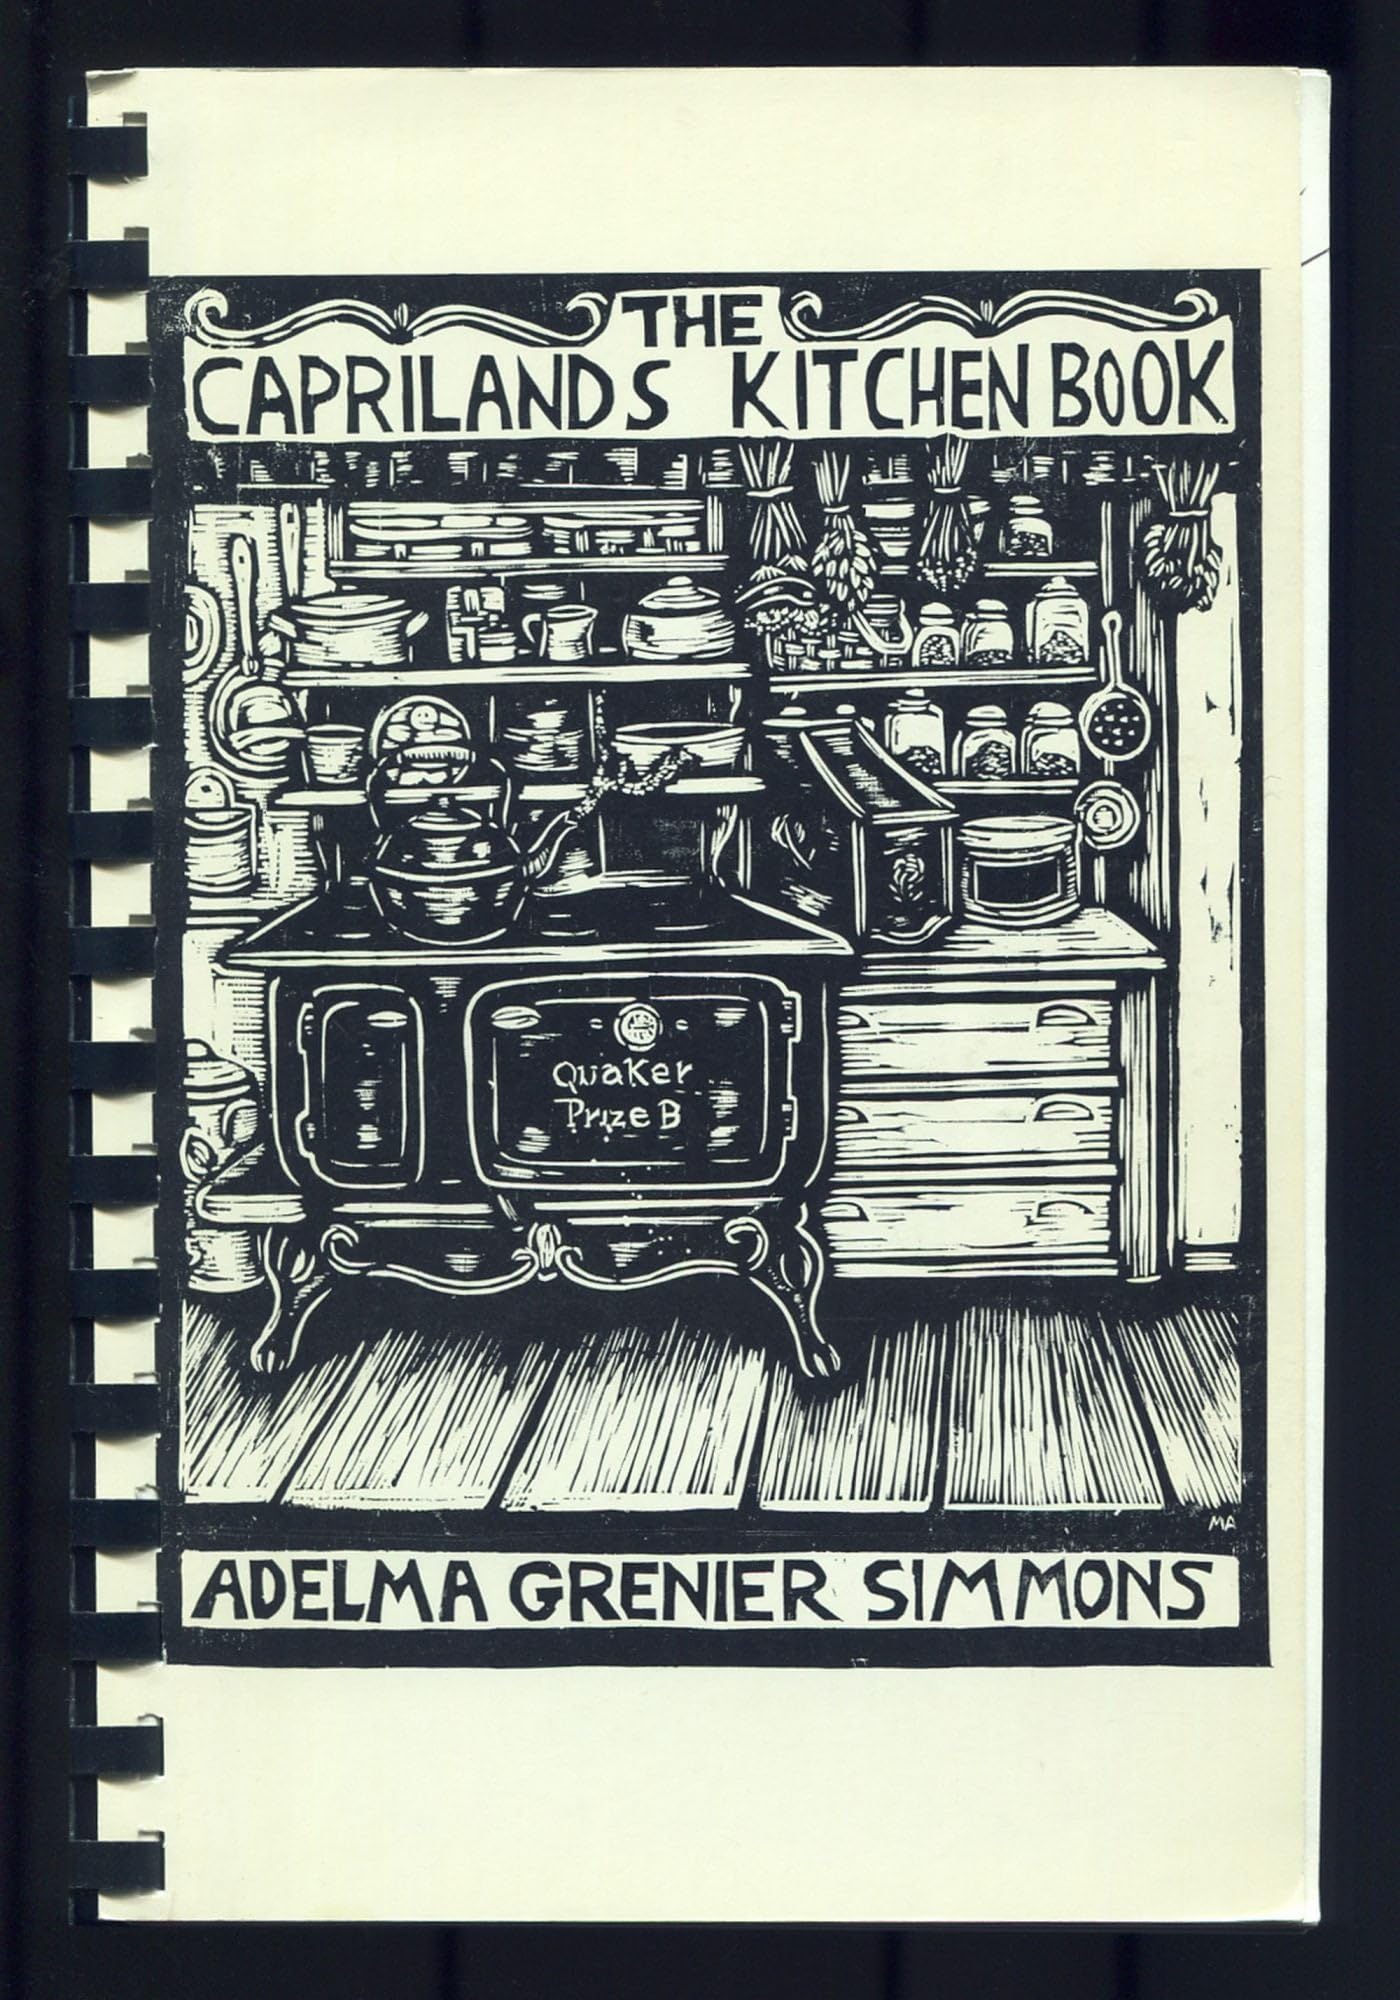 THE
CAPRILANDS KITCHEN BOOK
Quaker
Prize B
MA
ADELMA GRENIER SIMMONS